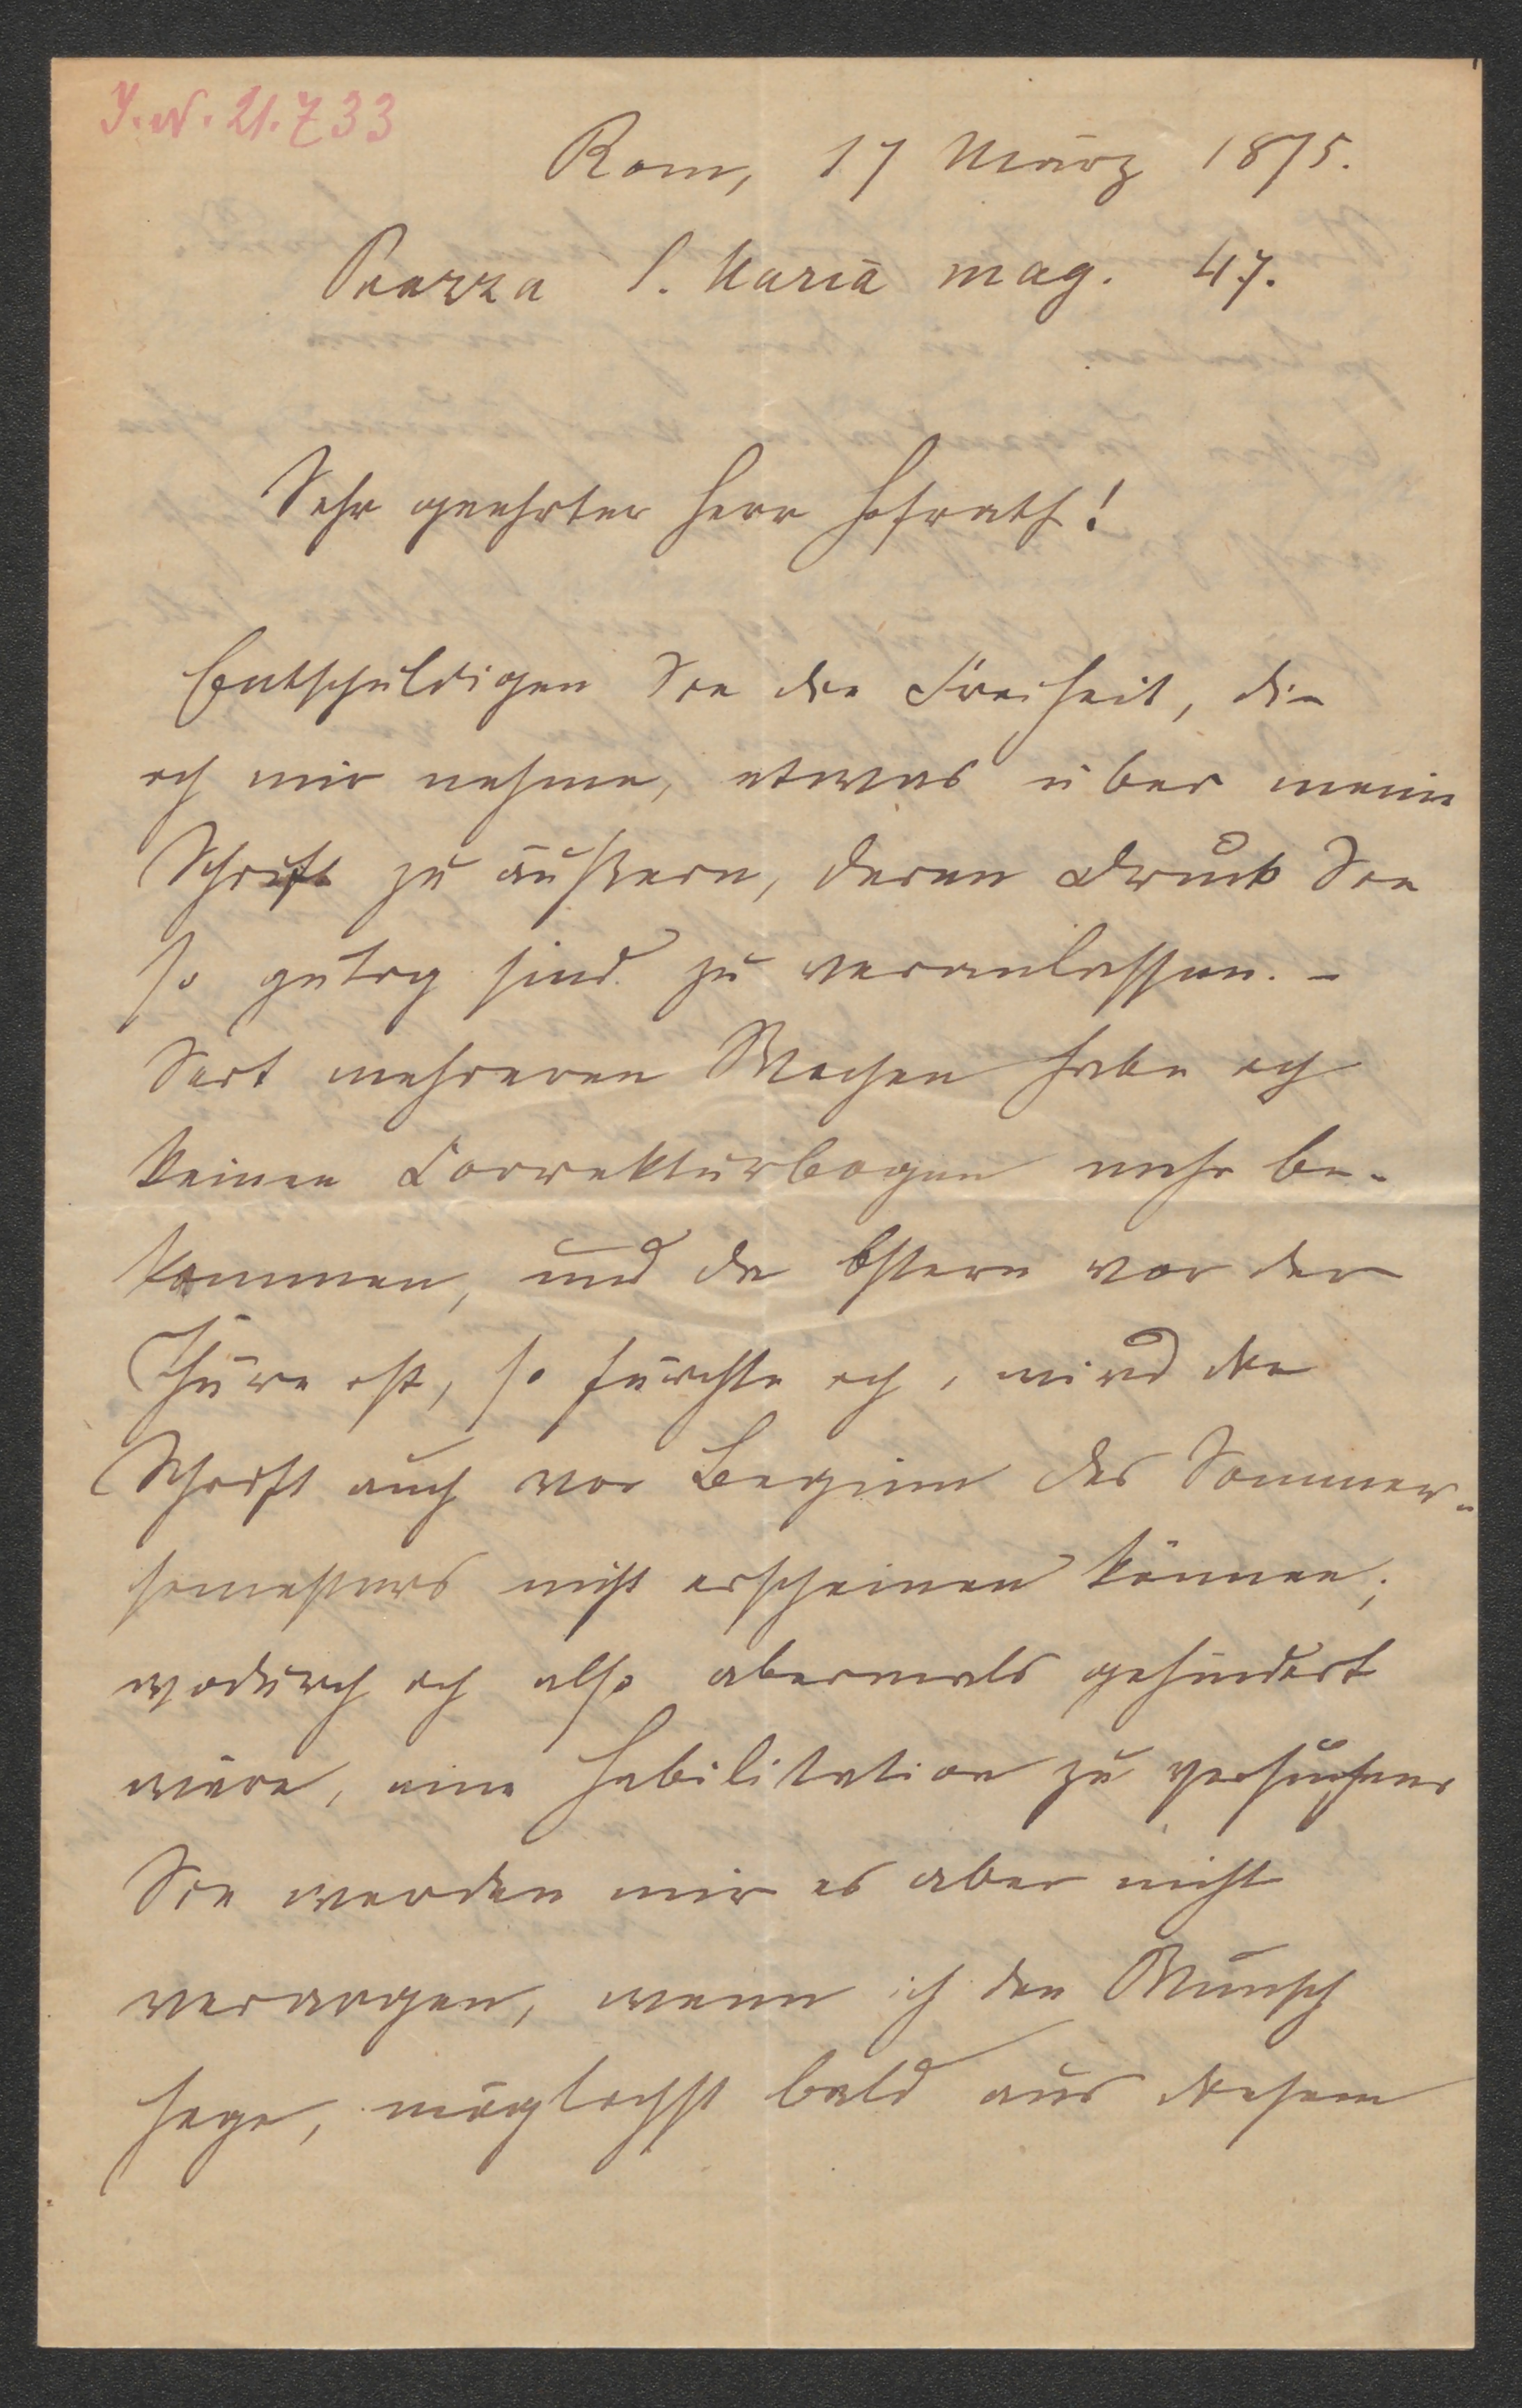 J.N. 21.733
Rom, 17 März 1875.
Piazza S. Maria mag. 47.
Sehr geehrter Herr Hofrath!
Entschuldigen Sie die Freiheit, die
ich mir nehme, etwas über meine
Schrift zu äußern, deren Druck Sie
so gütig sind zu veranlassen. –
Seit mehreren Wochen habe ich
keinen Correkturbogen mehr be-
kommen, und da Ostern vor der
Thüre ist, so fürchte ich, wird die
Schrift auch vor Beginn des Sommer-
semesters nicht erscheinen können;
wodurch ich also abermals gehindert
wäre, eine Habilitation zu versuchen.
Sie werden mir es aber nicht
verargen, wenn ich den Wunsch
hege, möglichst bald aus diesem